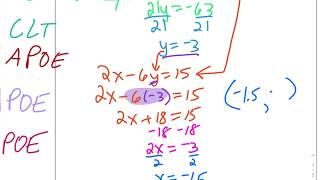 21y = -63
21 21
CLT
y = -3
APOE
2x - 6y = 15
POE
2x - 6(-3) = 15
(-1.5,
2x + 18 = 15
-18 -18
POE
2x = -3
2 2
x = -1.5